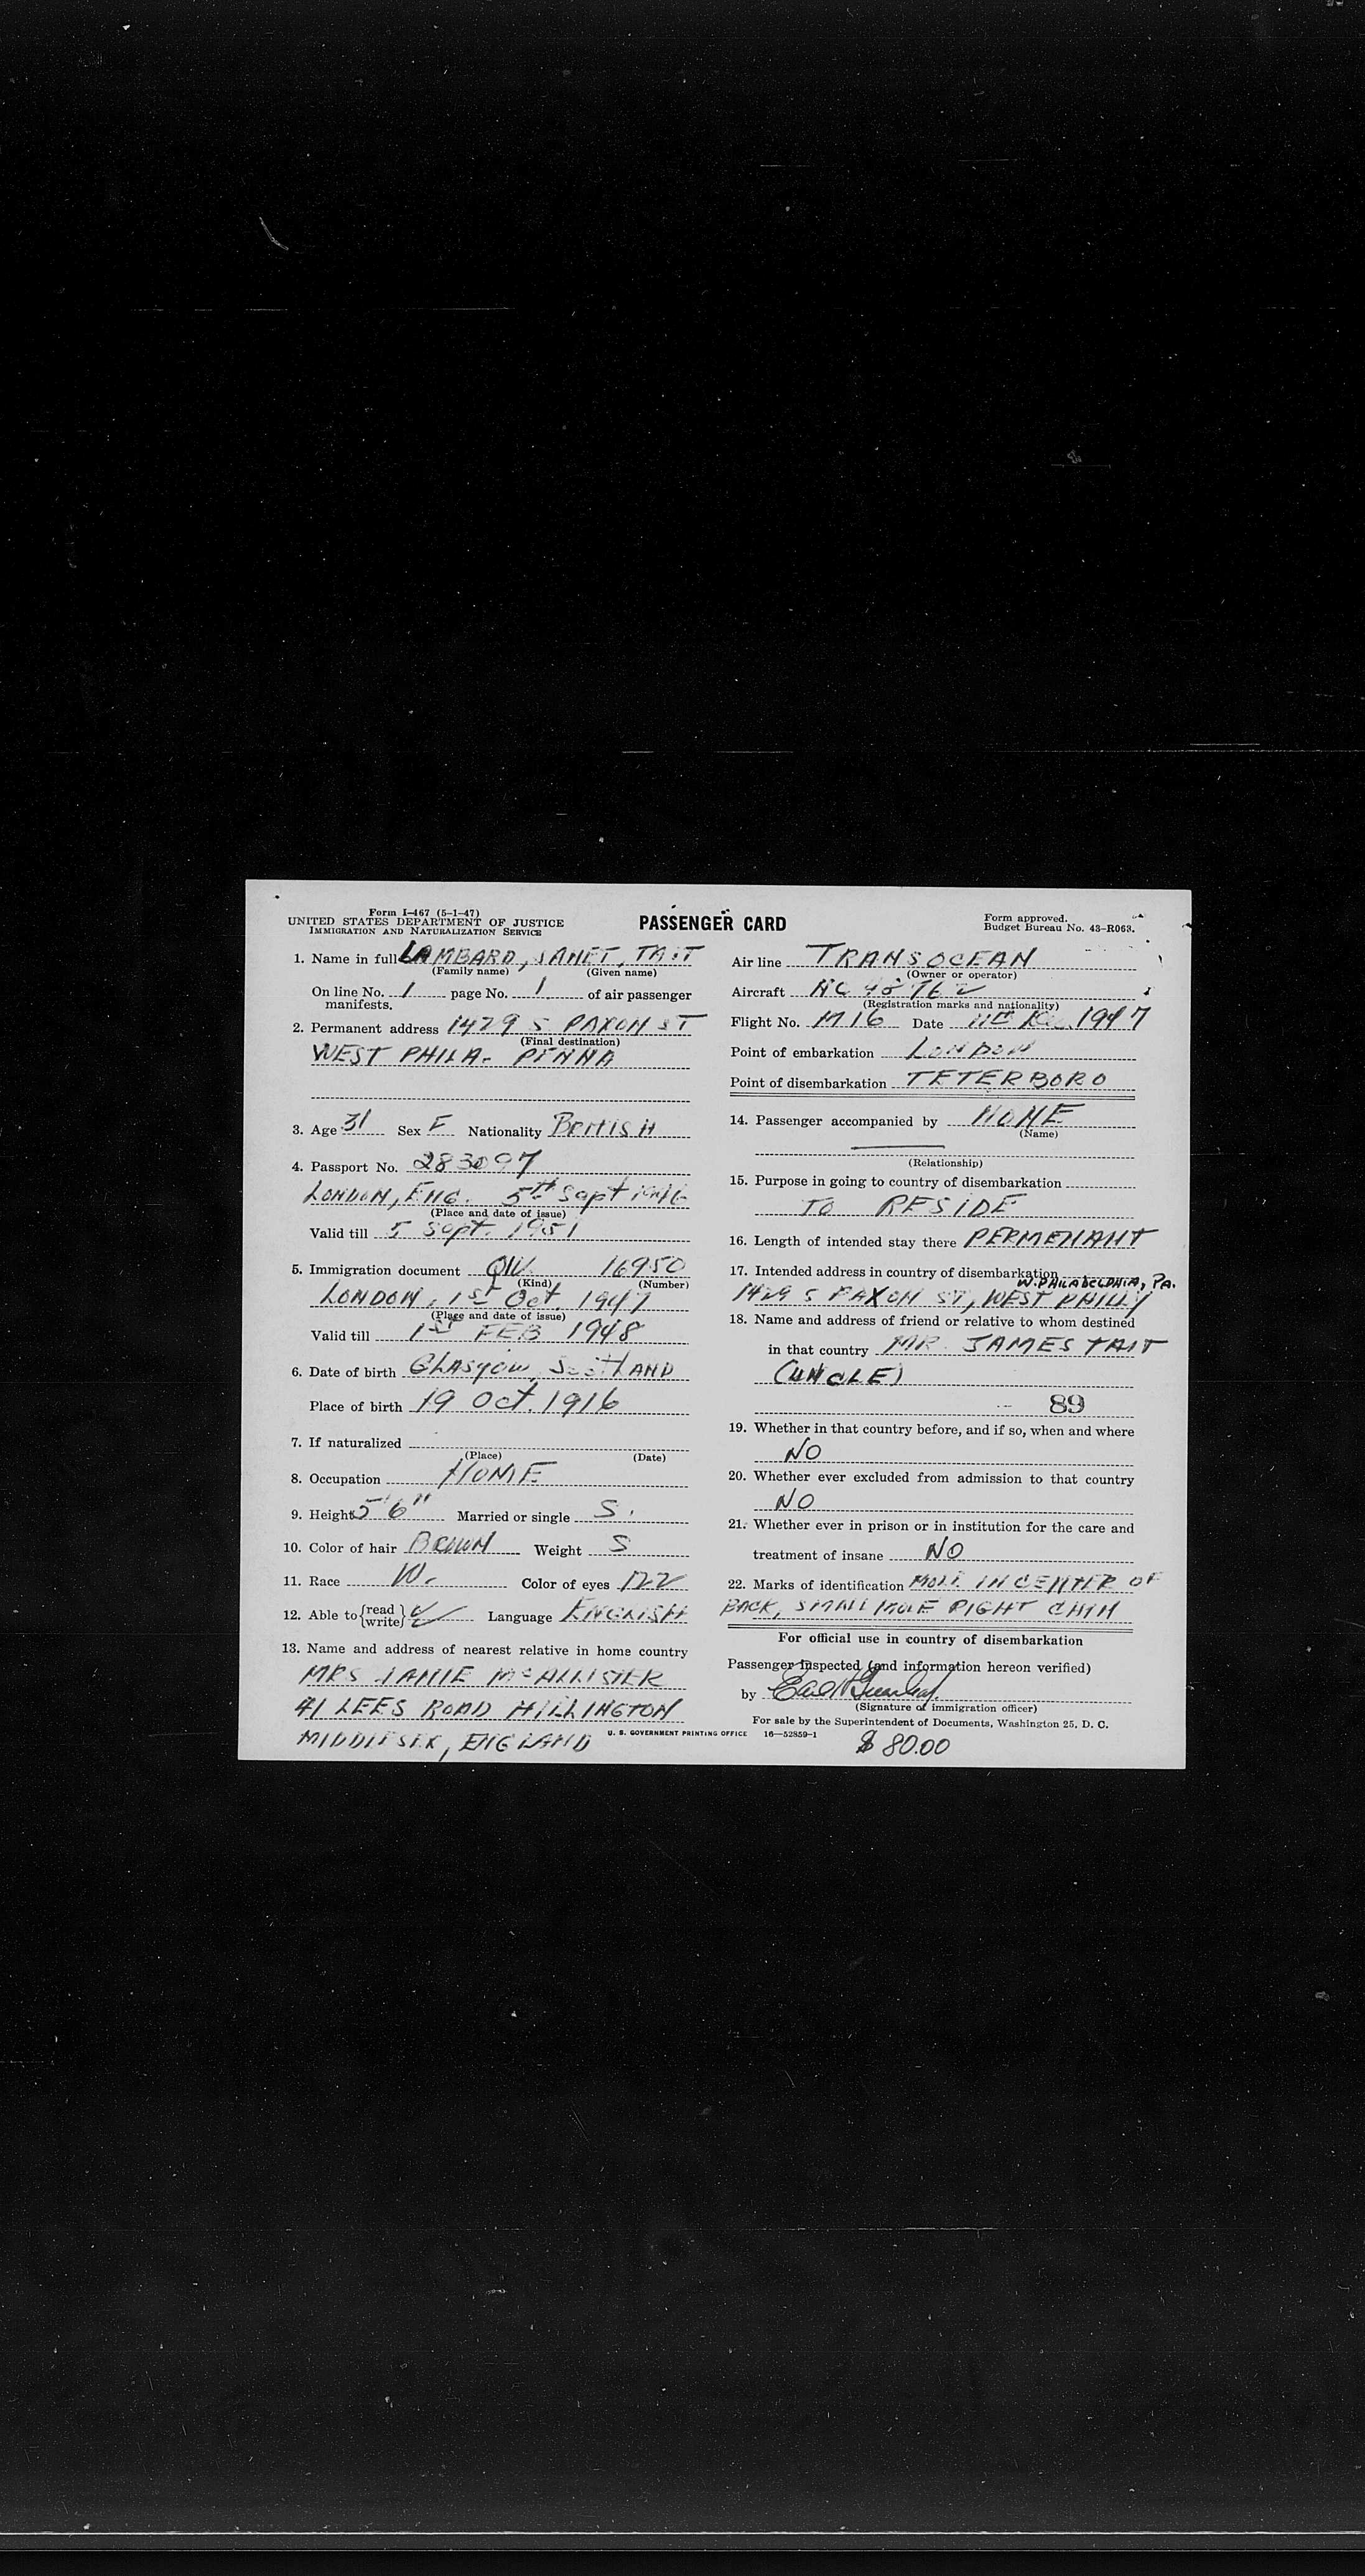 Form I-467 (5-1-47)
UNITED STATES DEPARTMENT OF JUSTICE
IMMIGRATION AND NATURALIZATION SERVICE
PASSENGER CARD
Form approved.
Budget Bureau No. 43-R063.
1. Name in full LAMBARD, JANET, TAIT
(Family name) (Given name)
On line No. 1 page No. 1 of air passenger
manifests.
2. Permanent address 1429 S PAXON ST
(Final destination)
WEST PHILA- PENNA
3. Age 31 Sex F Nationality BRITISH
4. Passport No. 283097
LONDON, ENG. 5th Sept 1946
(Place and date of issue)
Valid till 5 Sept. 1951
5. Immigration document QIV 16950
(Kind) (Number)
LONDON, 1st Oct. 1947
(Place and date of issue)
Valid till 1st FEB 1948
6. Date of birth GLASgow, ScotLAND
Place of birth 19 Oct. 1916
7. If naturalized
(Place) (Date)
8. Occupation HOME
9. Height 5'6" Married or single S.
10. Color of hair BROWN Weight S
11. Race W. Color of eyes 122
12. Able to {read write} Language ENGLISH
13. Name and address of nearest relative in home country
MRS JANIE McALLISTER
41 LEES ROAD HILLINGTON
MIDDLESEX, ENGLAND
U. S. GOVERNMENT PRINTING OFFICE 16—52859-1
Air line TRANSOCEAN
(Owner or operator)
Aircraft NC
(Registration marks and nationality)
Flight No. M16 Date 11th 1947
Point of embarkation LONDON
Point of disembarkation TETERBORO
14. Passenger accompanied by NONE
(Name)
(Relationship)
15. Purpose in going to country of disembarkation
TO RESIDE
16. Length of intended stay there PERMENANT
17. Intended address in country of disembarkation
W. PHILADELPHIA, PA.
1429 S PAXON ST, WEST PHILLY
18. Name and address of friend or relative to whom destined
in that country MR. JAMES TAIT
(UNCLE)
89
19. Whether in that country before, and if so, when and where
NO
20. Whether ever excluded from admission to that country
NO
21. Whether ever in prison or in institution for the care and
treatment of insane NO
22. Marks of identification MOLE IN CENTER OF
BACK, SMALL MOLE RIGHT CHIN
For official use in country of disembarkation
Passenger inspected (and information hereon verified)
by
(Signature of immigration officer)
For sale by the Superintendent of Documents, Washington 25, D. C.
$ 80.00